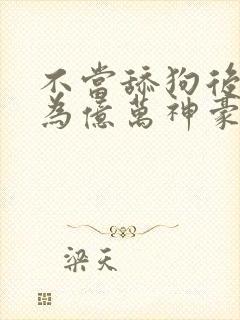 不當舔狗後
為億萬神豪
梁天